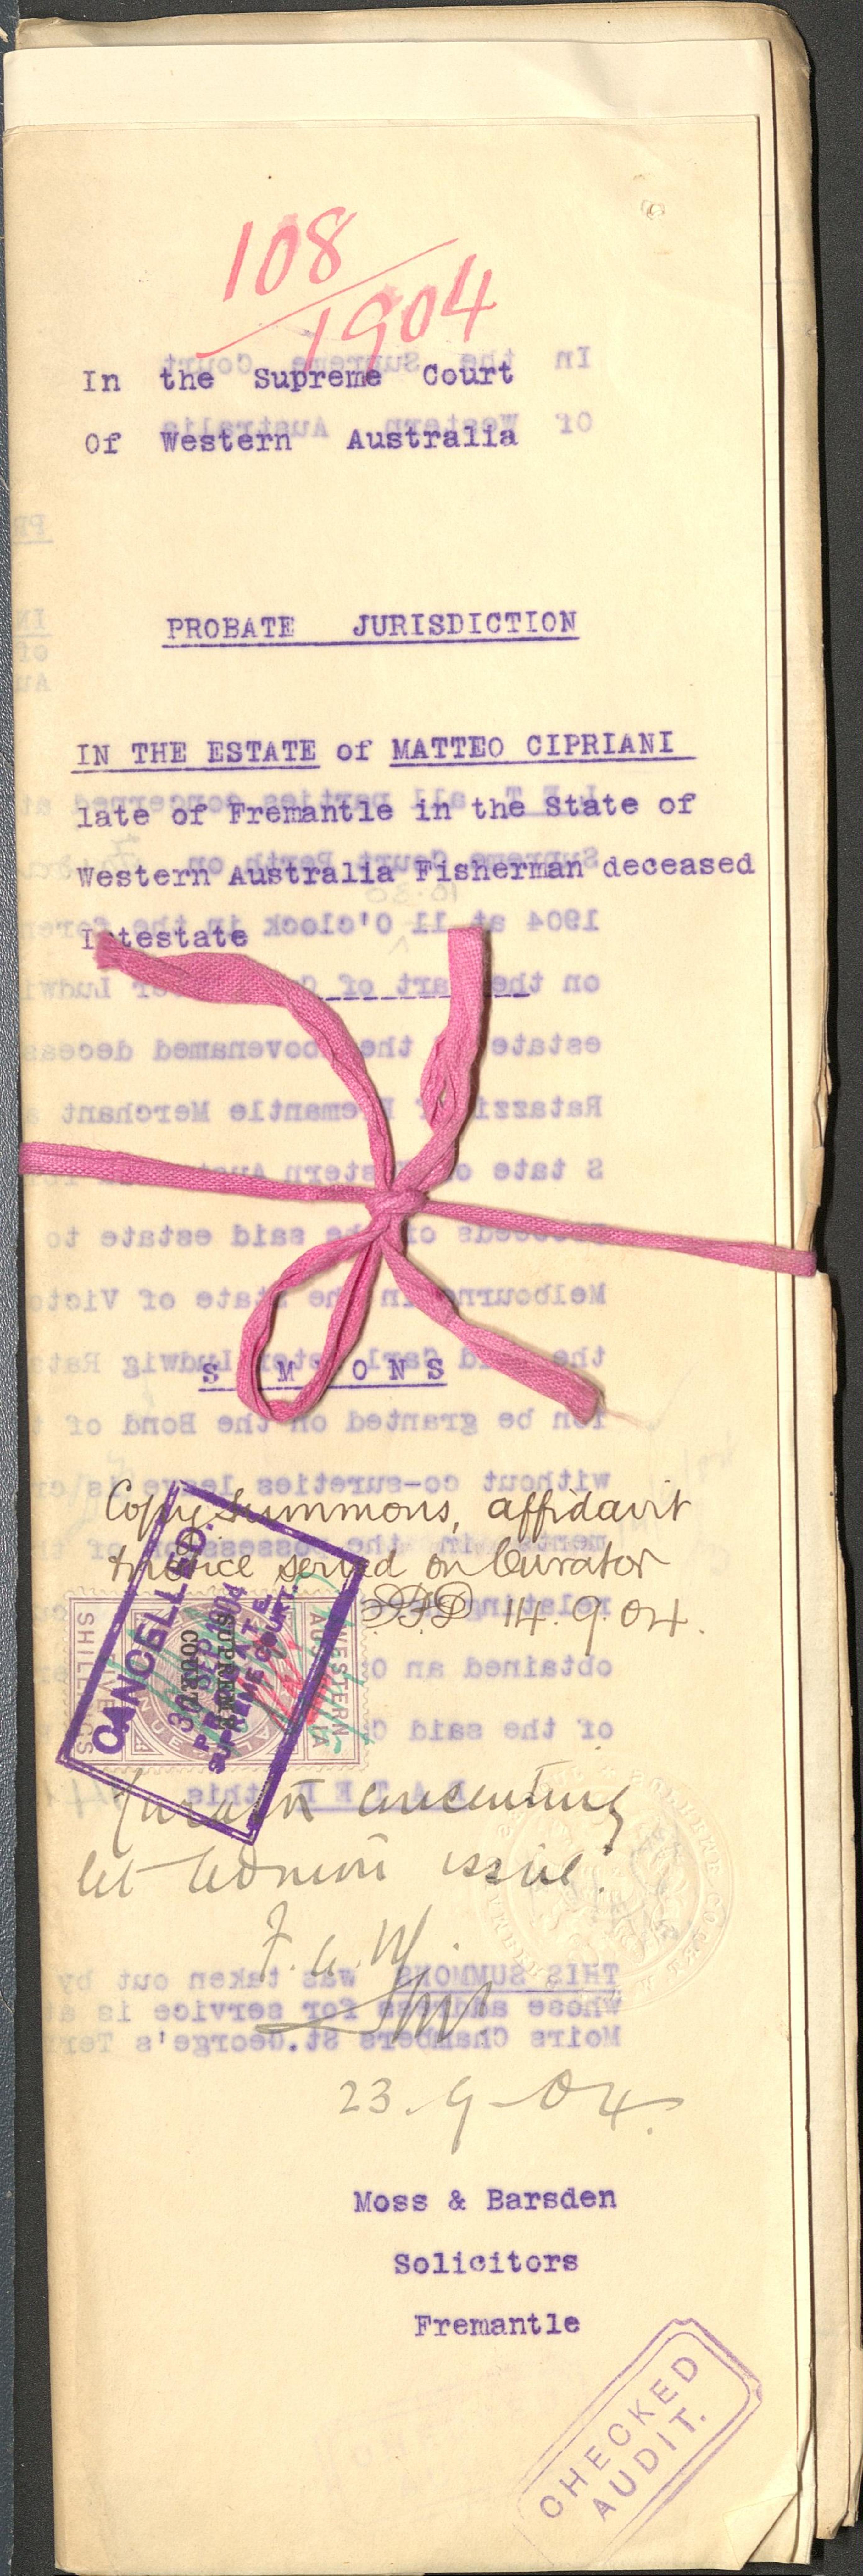 108
1904
In the Supreme Court
Of Western Australia
PROBATE JURISDICTION
IN THE ESTATE of MATTEO CIPRIANI
late of Fremantle in the State of
Western Australia Fisherman deceased
Intestate
S M ONS
Copy summons, affidavit
& notice served on Curator
14.9.04.
CANCELLED.
30 SEP 1904
PROBATE
SUPREME COURT.
SUPREME
COURT
WESTERN
AUSTRALIA
SHILLINGS
Curator consenting
let admon issue.
23-9-04.
Moss & Barsden
Solicitors
Fremantle
CHECKED
AUDIT.